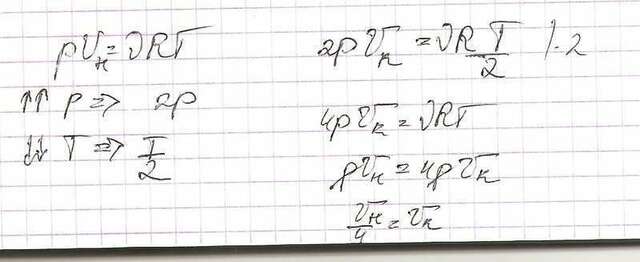 pVн = νRT
↑↑ p => 2p
↓↓ T => T/2
2pVк = νR T/2 /·2
4pVк = νRT
pVн = 4pVк
Vн/4 = Vк